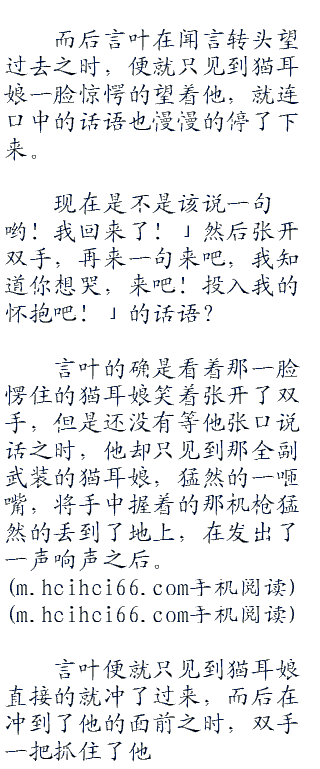 而后言叶在闻言转头望
过去之时，便就只见到猫耳
娘一脸惊愕的望着他，就连
口中的话语也慢慢的停了下
来。
现在是不是该说一句
哟！我回来了！」然后张开
双手，再来一句来吧，我知
道你想哭，来吧！投入我的
怀抱吧！」的话语？
言叶的确是看着那一脸
愣住的猫耳娘笑着张开了双
手，但是还没有等他张口说
话之时，他却只见到那全副
武装的猫耳娘，猛然的一咂
嘴，将手中握着的那机枪猛
然的丢到了地上，在发出了
一声响声之后。
(m.hcihci66.com手机阅读)
(m.hcihci66.com手机阅读)
言叶便就只见到猫耳娘
直接的就冲了过来，而后在
冲到了他的面前之时，双手
一把抓住了他